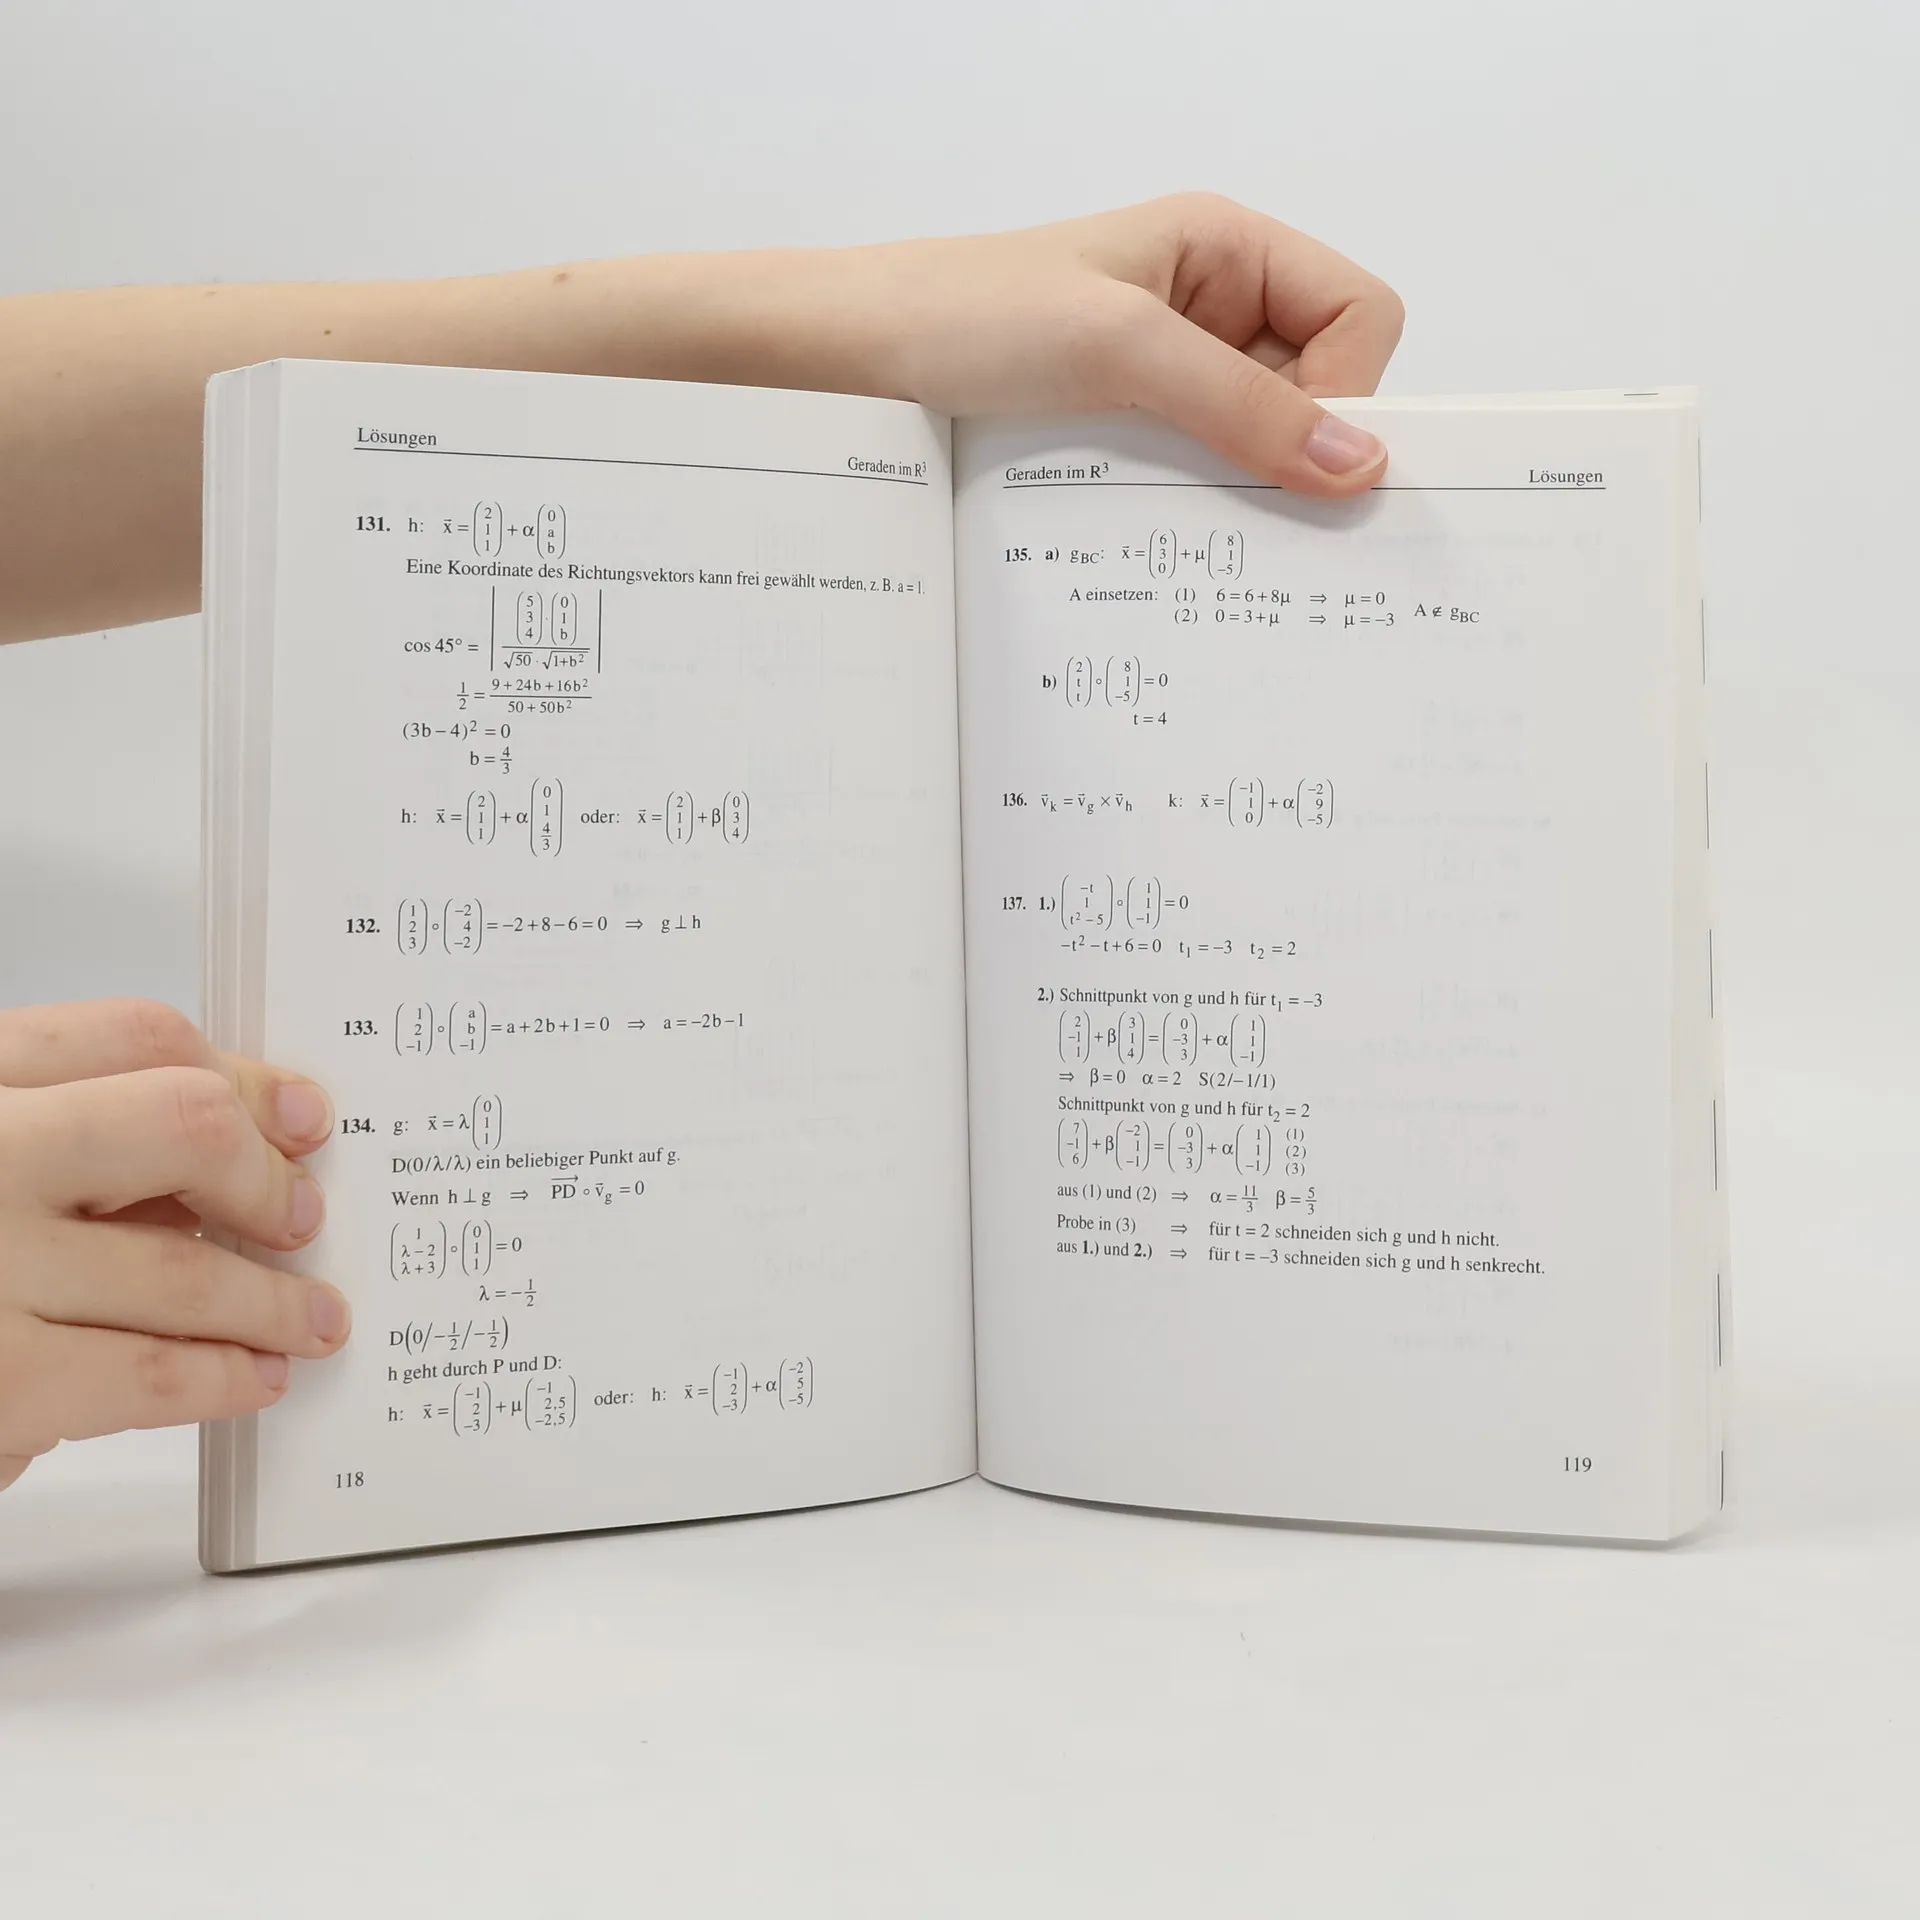 Lösungen
Geraden im R³
131. h: x⃗ = (2 1 1) + α (0 a b)
Eine Koordinate des Richtungsvektors kann frei gewählt werden, z. B. a = 1.
cos 45° = | (5 3 4) · (0 1 b) / √50 · √1+b² |
1/2 = 9 + 24b + 16b² / 50 + 50b²
(3b – 4)² = 0
b = 4/3
h: x⃗ = (2 1 1) + α (0 1 4/3) oder: x⃗ = (2 1 1) + β (0 3 4)
132. (1 2 3) ∘ (–2 4 –2) = –2 + 8 – 6 = 0 ⇒ g ⊥ h
133. (1 2 –1) ∘ (a b –1) = a + 2b + 1 = 0 ⇒ a = –2b – 1
134. g: x⃗ = λ (0 1 1)
D(0/λ/λ) ein beliebiger Punkt auf g.
Wenn h ⊥ g ⇒ PD⃗ ∘ v⃗g = 0
(1 λ – 2 λ + 3) ∘ (0 1 1) = 0
λ = –1/2
D(0/–1/2/–1/2)
h geht durch P und D:
h: x⃗ = (–1 2 –3) + μ (–1 2,5 –2,5) oder: h: x⃗ = (–1 2 –3) + α (–2 5 –5)
118
Geraden im R³
Lösungen
135. a) gBC: x⃗ = (6 3 0) + μ (8 1 –5)
A einsetzen: (1) 6 = 6 + 8μ ⇒ μ = 0
(2) 0 = 3 + μ ⇒ μ = –3 A ∉ gBC
b) (2 t t) ∘ (8 1 –5) = 0
t = 4
136. v⃗k = v⃗g × v⃗h k: x⃗ = (–1 1 0) + α (–2 9 –5)
137. 1.) (–t 1 t² – 5) ∘ (1 1 –1) = 0
–t² – t + 6 = 0 t₁ = –3 t₂ = 2
2.) Schnittpunkt von g und h für t₁ = –3
(2 –1 1) + β (3 1 4) = (0 –3 3) + α (1 1 –1)
⇒ β = 0 α = 2 S(2/–1/1)
Schnittpunkt von g und h für t₂ = 2
(7 –1 6) + β (–2 1 –1) = (0 –3 3) + α (1 1 –1) (1) (2) (3)
aus (1) und (2) ⇒ α = 11/3 β = 5/3
Probe in (3) ⇒ für t = 2 schneiden sich g und h nicht.
aus 1.) und 2.) ⇒ für t = –3 schneiden sich g und h senkrecht.
119